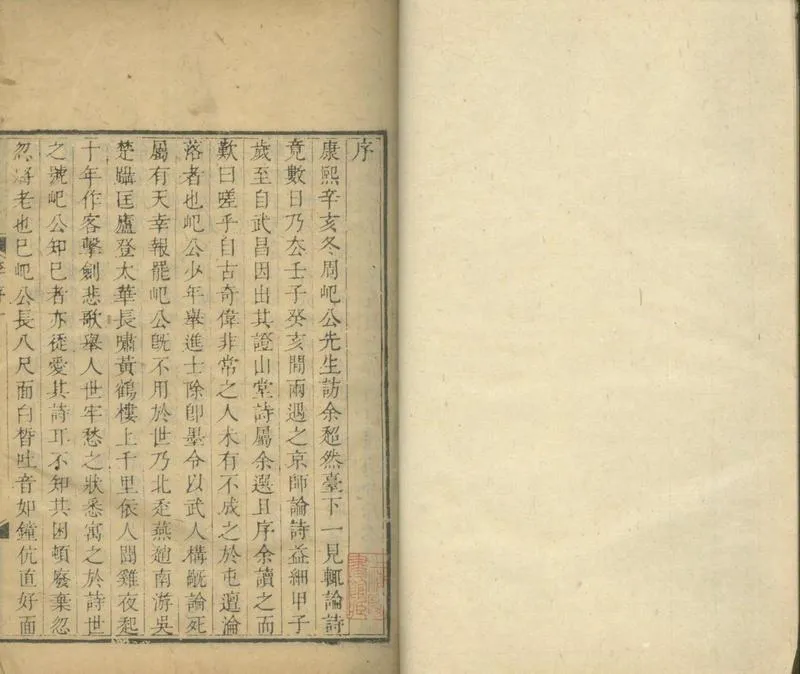 序
康熙辛亥冬周屺公先生訪余超然臺下一見輒論詩
竟數日乃去壬子癸亥間兩遇之京師論詩益細甲子
歲至自武昌因出其證山堂詩屬余選且序余讀之而
歎曰嗟乎自古奇偉非常之人未有不成之於屯邅淪
落者也屺公少年舉進士除卽墨令以武人構甗論死
屬有天幸報罷屺公旣不用於世乃北走燕趙南游吳
楚躡匡廬登太華長嘯黃鶴樓上千里依人聞雞夜起
十年作客擊劍悲歌舉人世牢愁之狀悉寓之於詩世
之號屺公知巳者亦徒愛其詩耳不知其困頓廢棄忽
忽將老也巳屺公長八尺面白晳吐音如鐘伉直好面